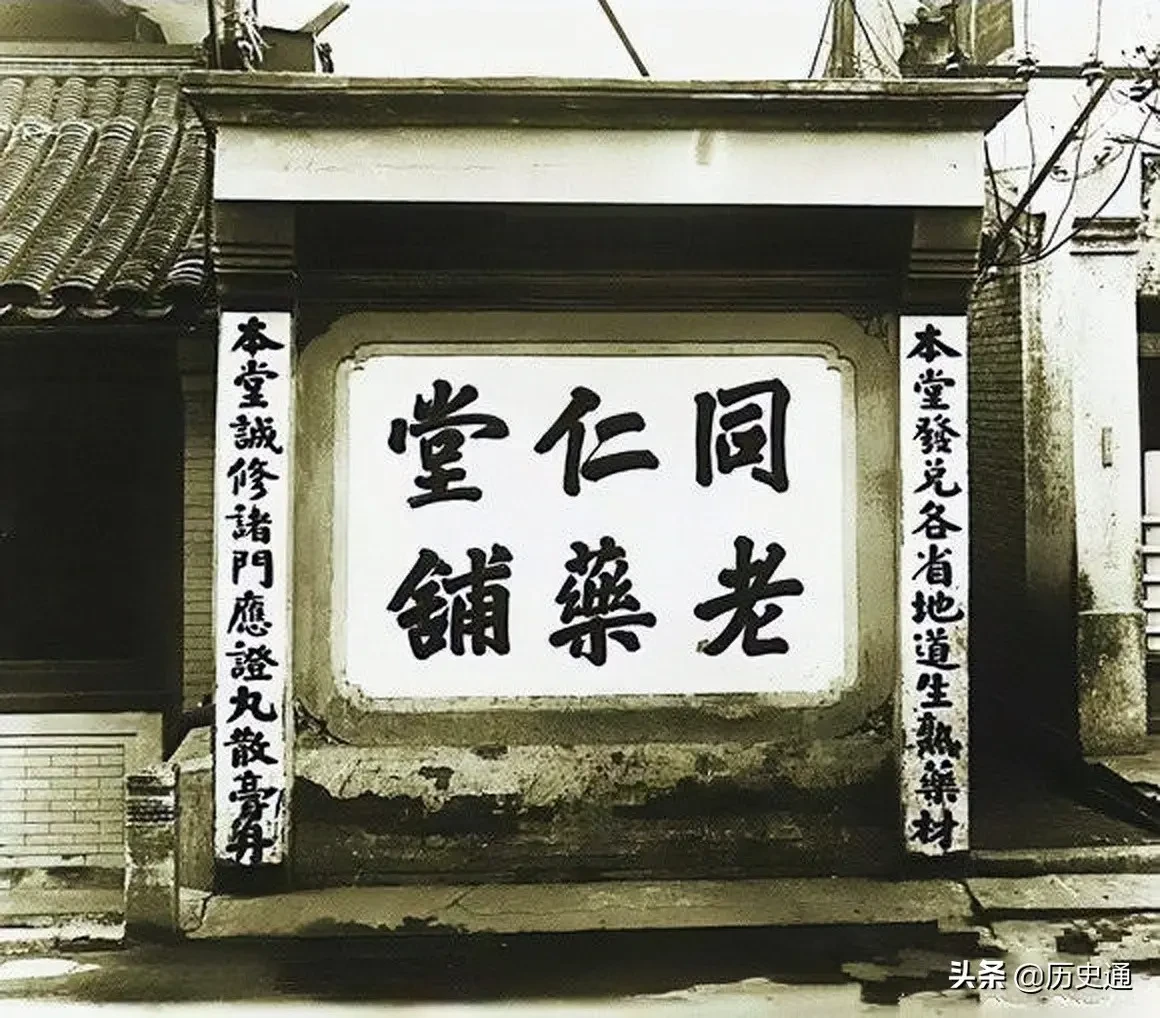 同仁堂
老藥舖
本堂發兑各省地道生熟藥材
本堂誠修諸門應證丸散膏丹
头条 @历史通